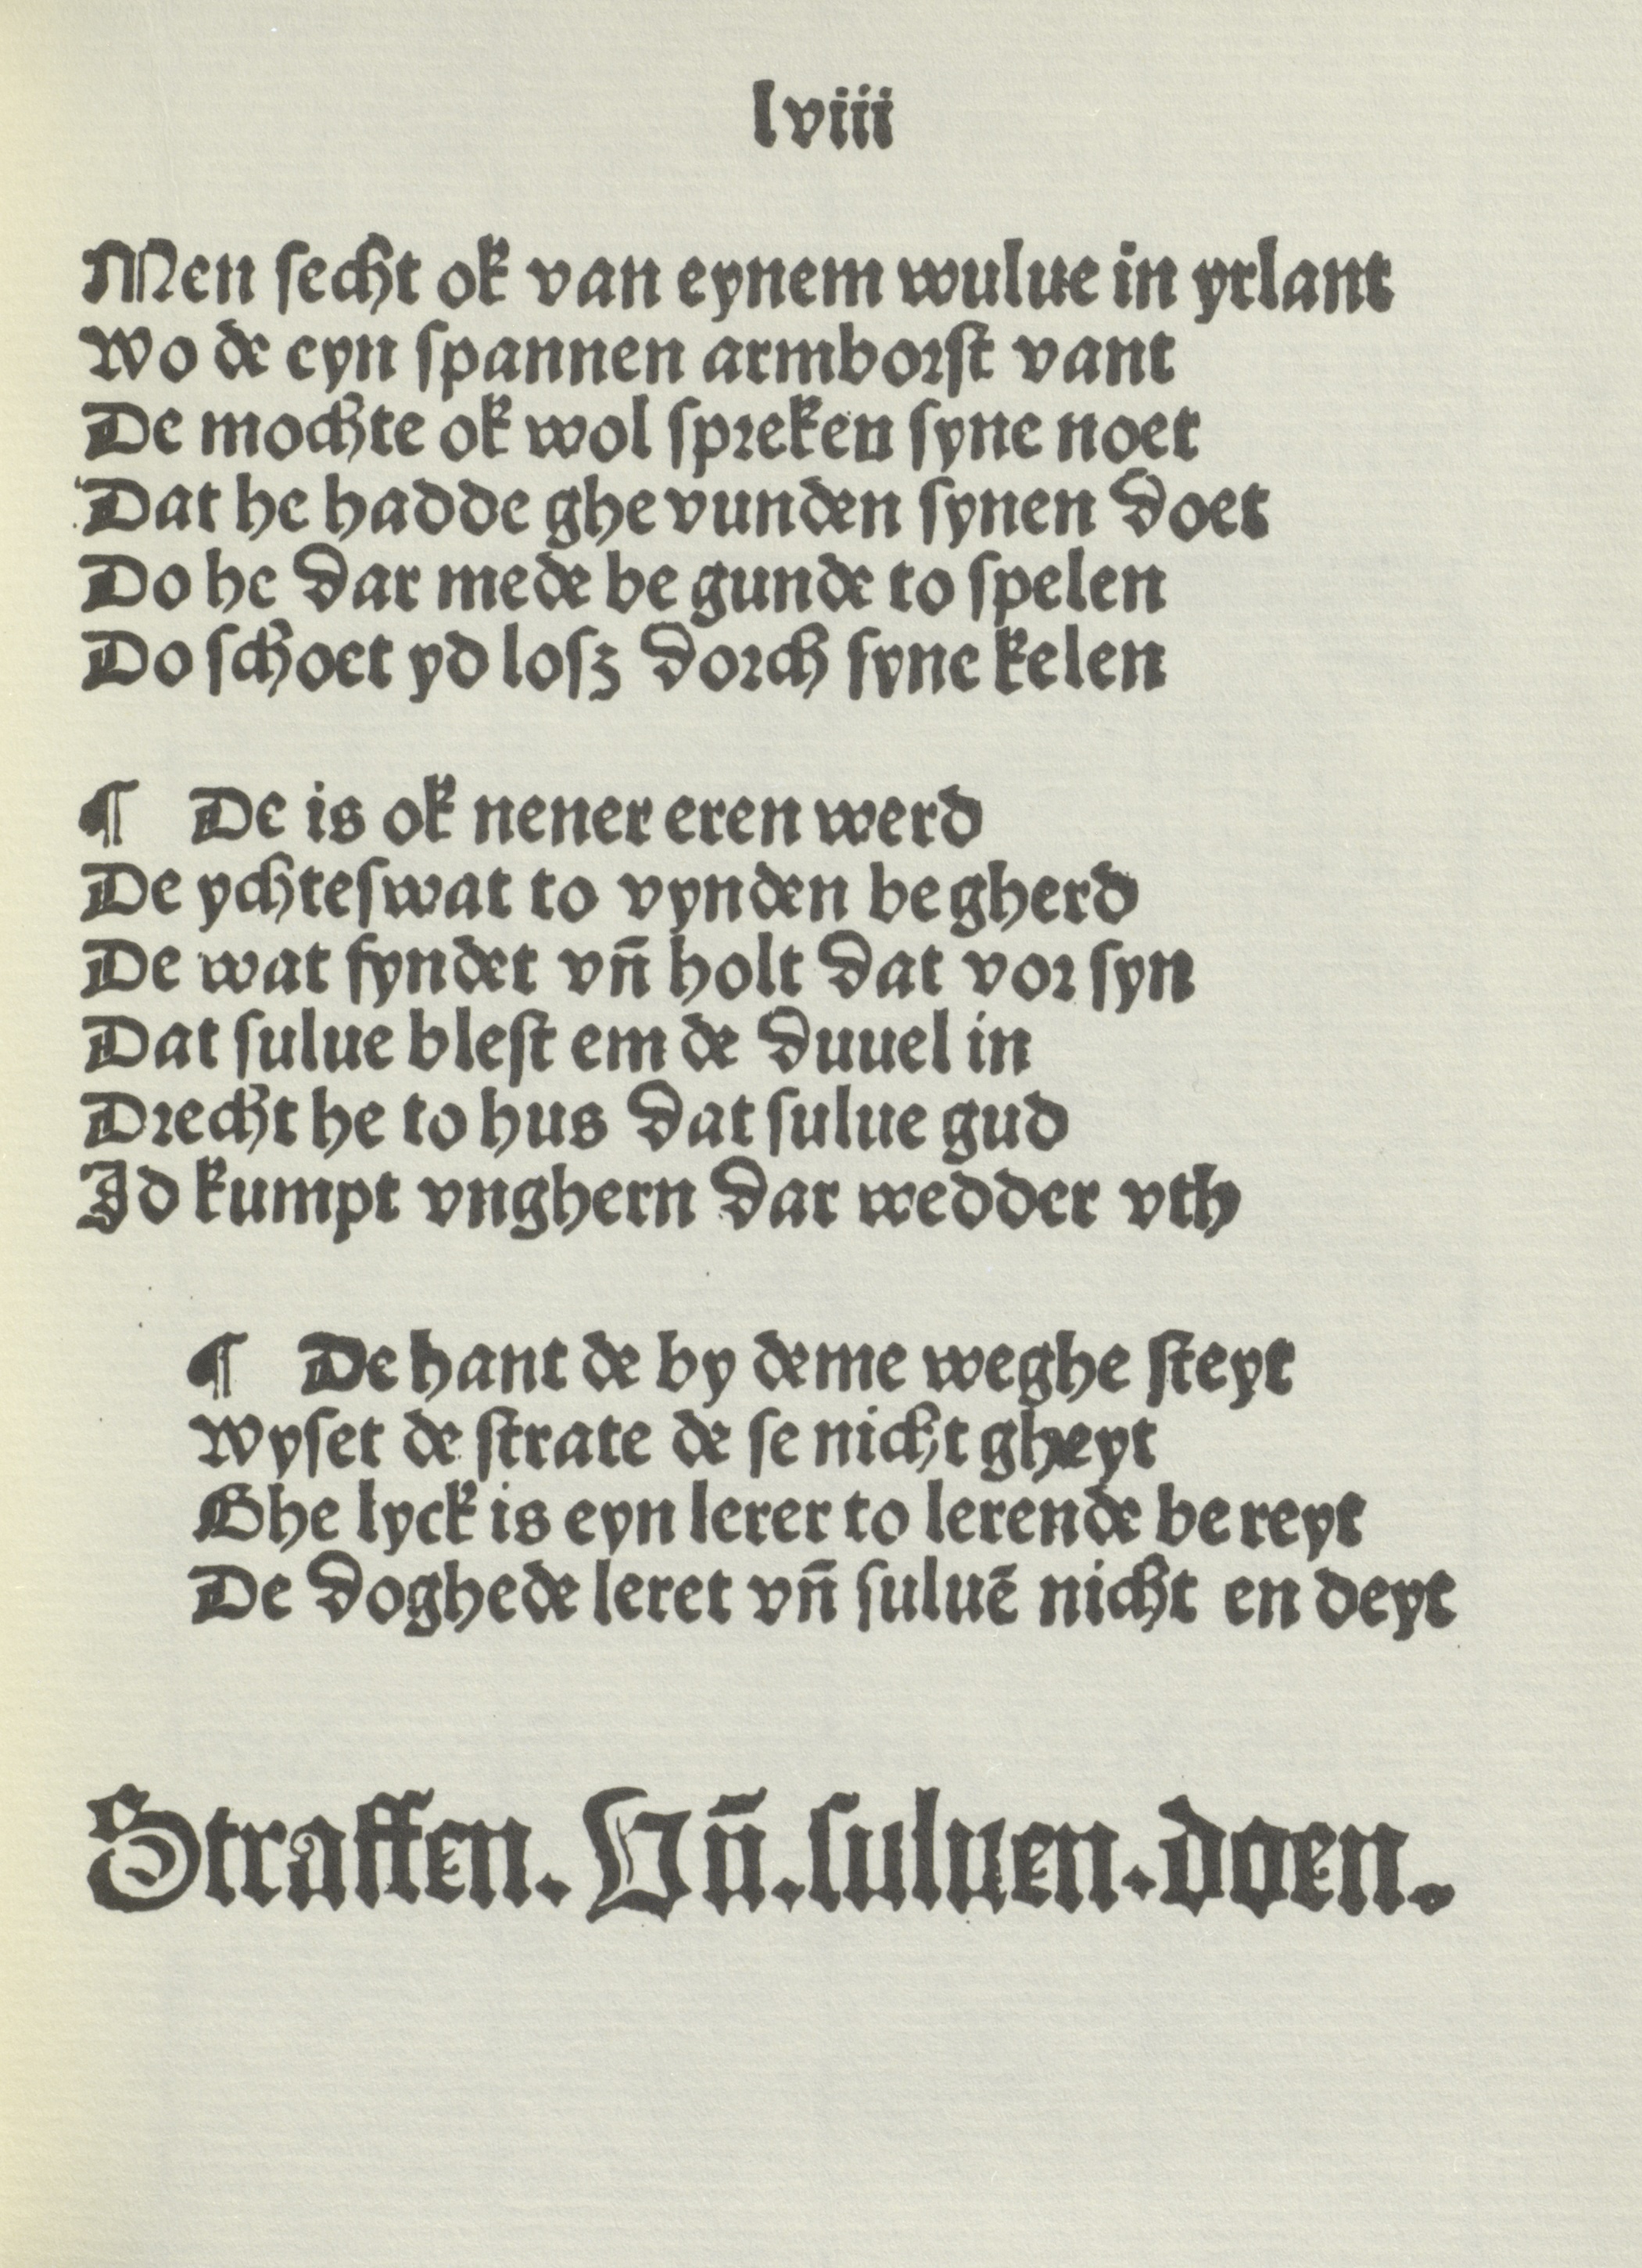 lviii
Men ſecht ok van eynem wulue in yrlant
Wo de eyn ſpannen armborſt vant
De mochte ok wol ſpreken ſyne noet
Dat he hadde ghe vunden ſynen doet
Do he dar mede be gunde to ſpelen
Do ſchoet yd loſz dorch ſyne kelen
¶ De is ok nener eren werd
De ychteſwat to vynden be gherd
De wat fyndet vn̄ holt dat vor ſyn
Dat ſulue bleſt em de duuel in
Drecht he to hus dat ſulue gud
Id kumpt vnghern dar wedder vth
¶ De hant de by deme weghe ſteyt
Wyſet de ſtrate de ſe nicht gheyt
Ghe lyck is eyn lerer to lerende be reyt
De doghede leret vn̄ ſuluē nicht en deyt
Straffen. Vn̄. ſuluen. doen.